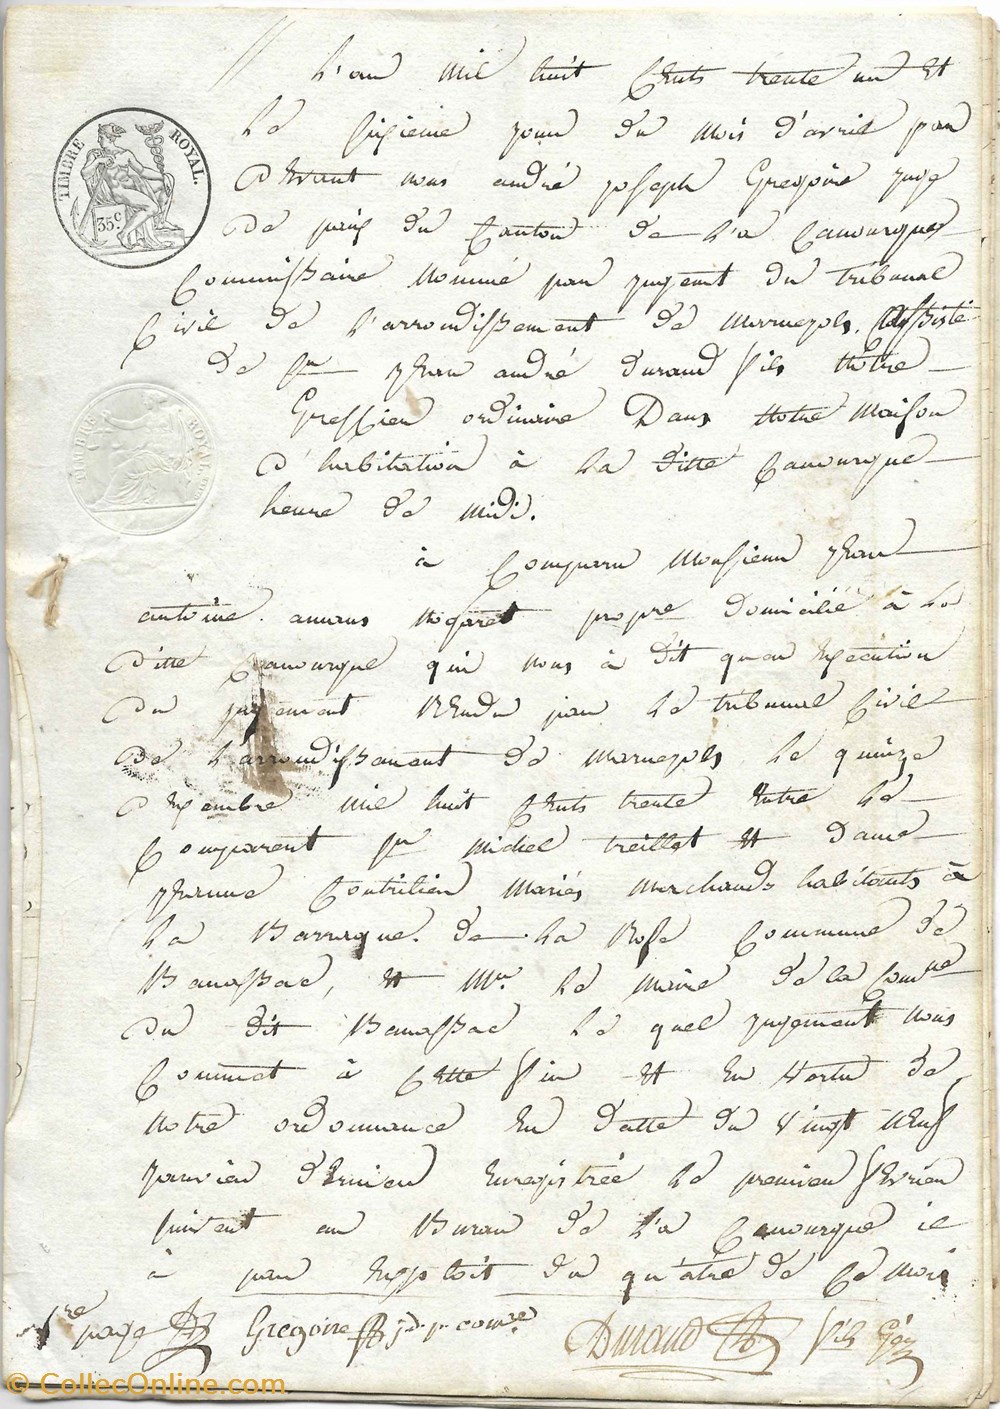 L'an mil huit cents trente un et
le sixieme jour du mois d'avril par
TIMBRE ROYAL.
35c
devant nous andré joseph Gregoire juge
de paix du canton de La Canourgue
Commissaire nommé par jugemt du tribunal
Civil de l'arrondissement de marvejols. assisté
de Sr jean andré durand fils notre
Greffier ordinaire Dans notre maison
d'habitation à la ditte Canourgue
heure de midi.
à Comparu Monsieur jean
antoine amans nogaret propre domicilié à la
ditte Canourgue qui nous à dit qu'en Execution
du jugement Rendu par le tribunal Civil
de l'arrondissement de marvejols le quinze
decembre mil huit cents trente Entre le
Comparent Sr michel treillet et dame
jeanne mariés marchands habitants à
la Barraque de la Rose Commune de
Banassac, et Mr le maire de la Comne
du dit Banassac le quel jugement nous
Commet à cette fin et En vertu de
notre ordonnance En datte du vingt neuf
janvier dernier Enregistrée le premier fevrier
suivant au Bureau de La Canourgue ie
à par Exploit du quatre de ce mois
1re page Gregoire j. p. comre Durand fils Ger
© CollecOnline.com